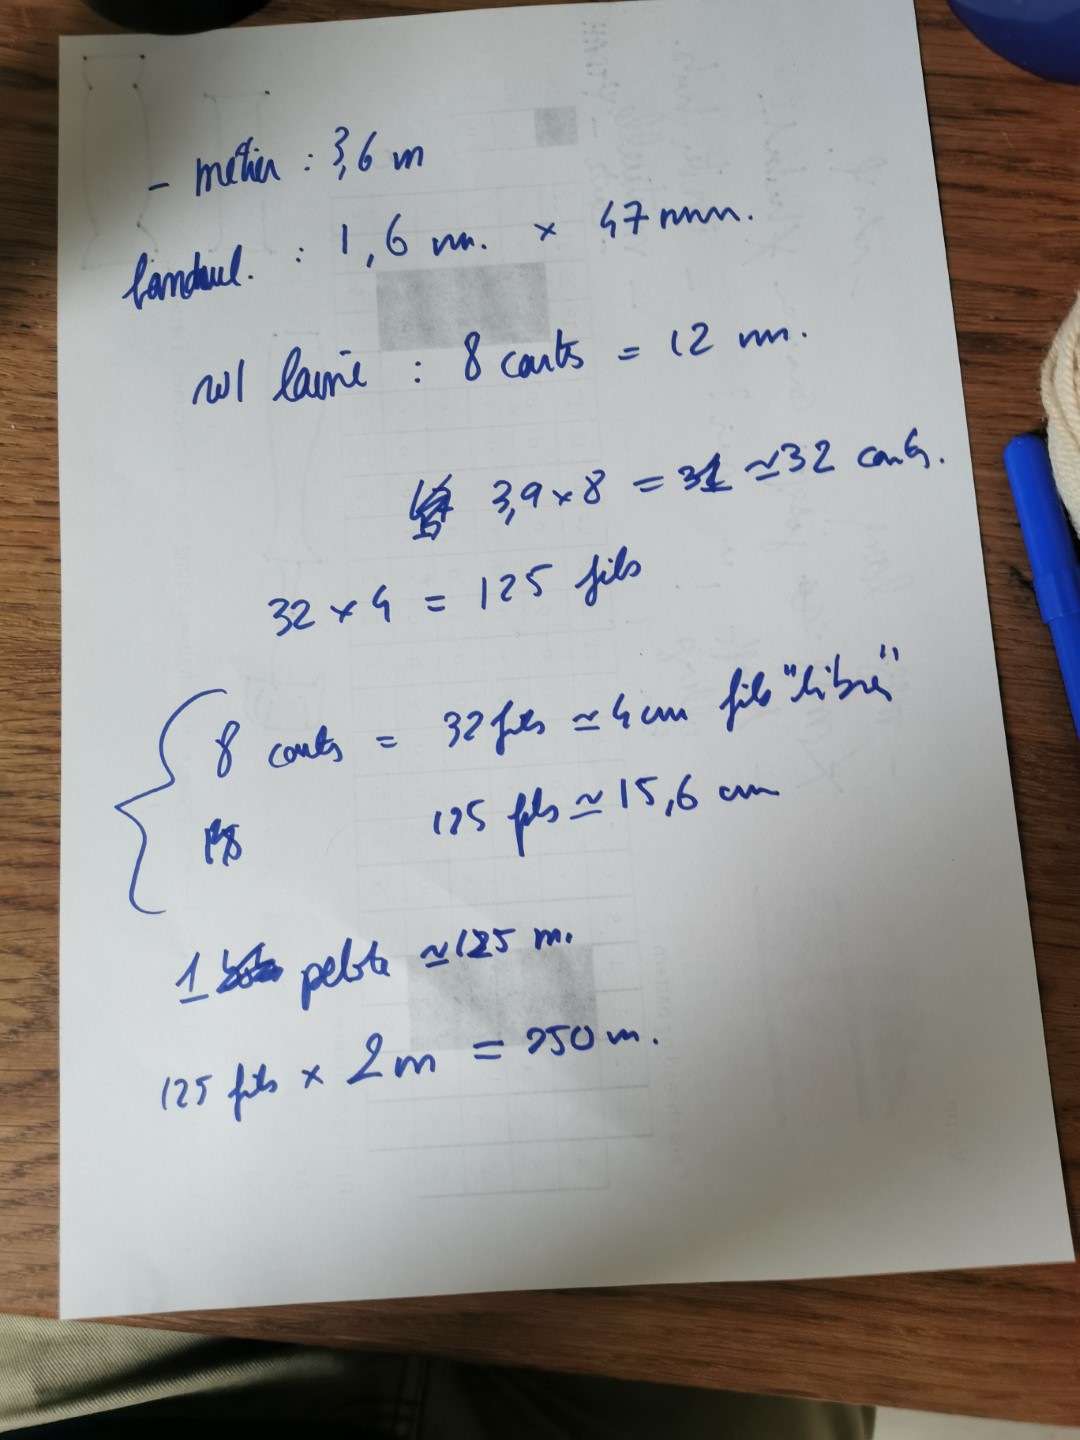 - métier : 3,6 m
: 1,6 m. × 47 mm.
laine : 8 carts = 12 mm.
3,9 × 8 = 31 ≃ 32 carts.
32 × 4 = 125 fils
8 carts = 32 fils ≃ 4 cm fils "libres"
125 fils ≃ 15,6 cm
1 pelote ≃ 125 m.
125 fils × 2 m = 250 m.